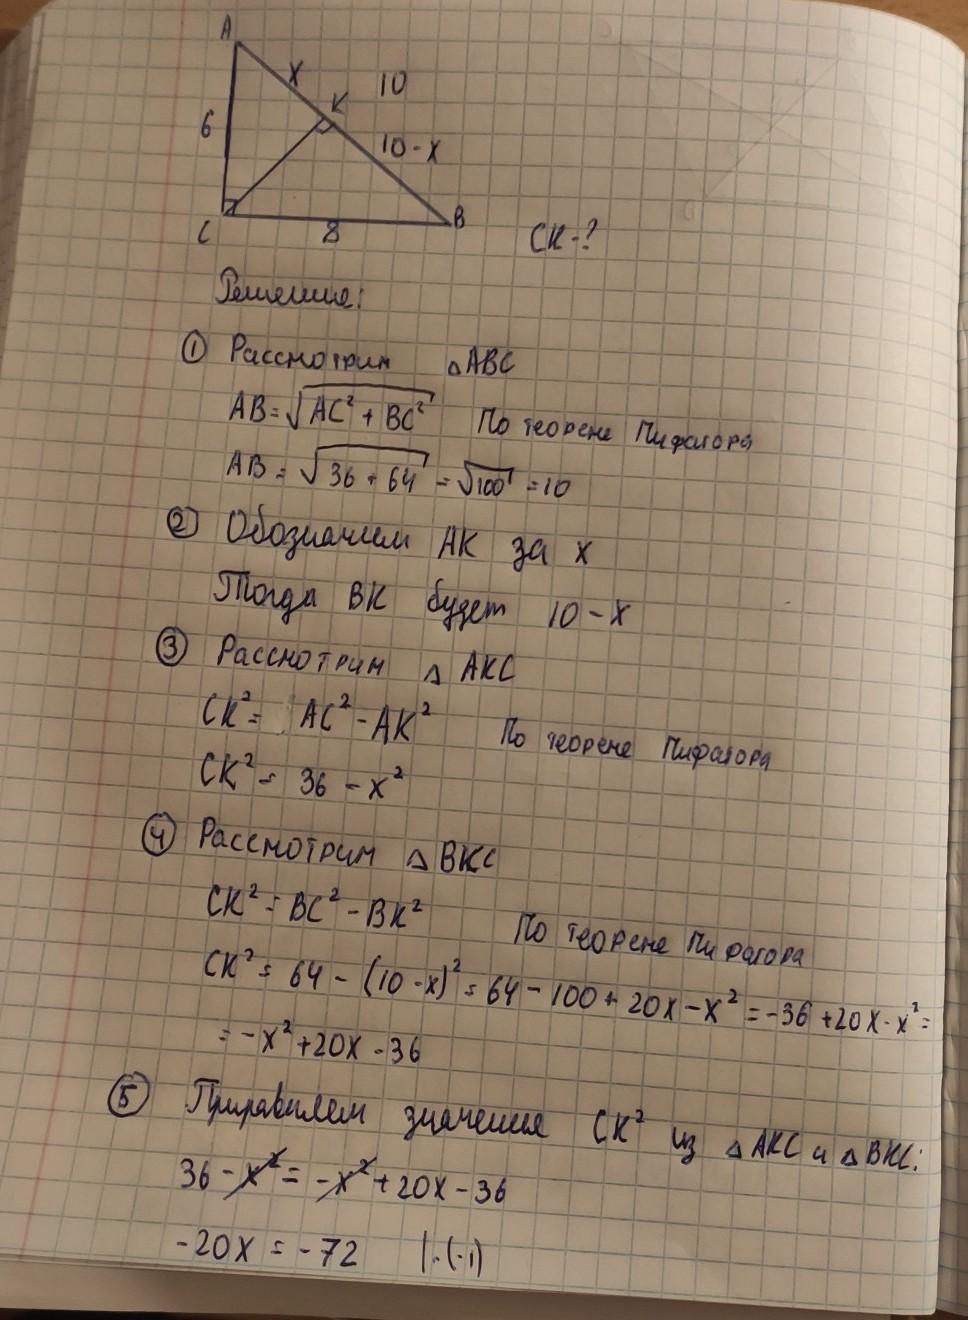 A
x
10
K
6
10-x
C
8
B
CK-?
Решение:
① Рассмотрим △ABC
AB=√AC²+BC² По теореме Пифагора
AB=√36+64=√100=10
② Обозначим AK за x
Тогда BK будет 10-x
③ Рассмотрим △ AKC
CK²= AC²-AK² По теореме Пифагора
CK²= 36-x²
④ Рассмотрим △ BKC
CK²=BC²-BK² По теореме Пифагора
CK²= 64-(10-x)²=64-100+20x-x²=-36+20x-x²=
=-x²+20x-36
⑤ Приравняем значения CK² из △AKC и △BKC:
36-x²=-x²+20x-36
-20x=-72 |·(-1)